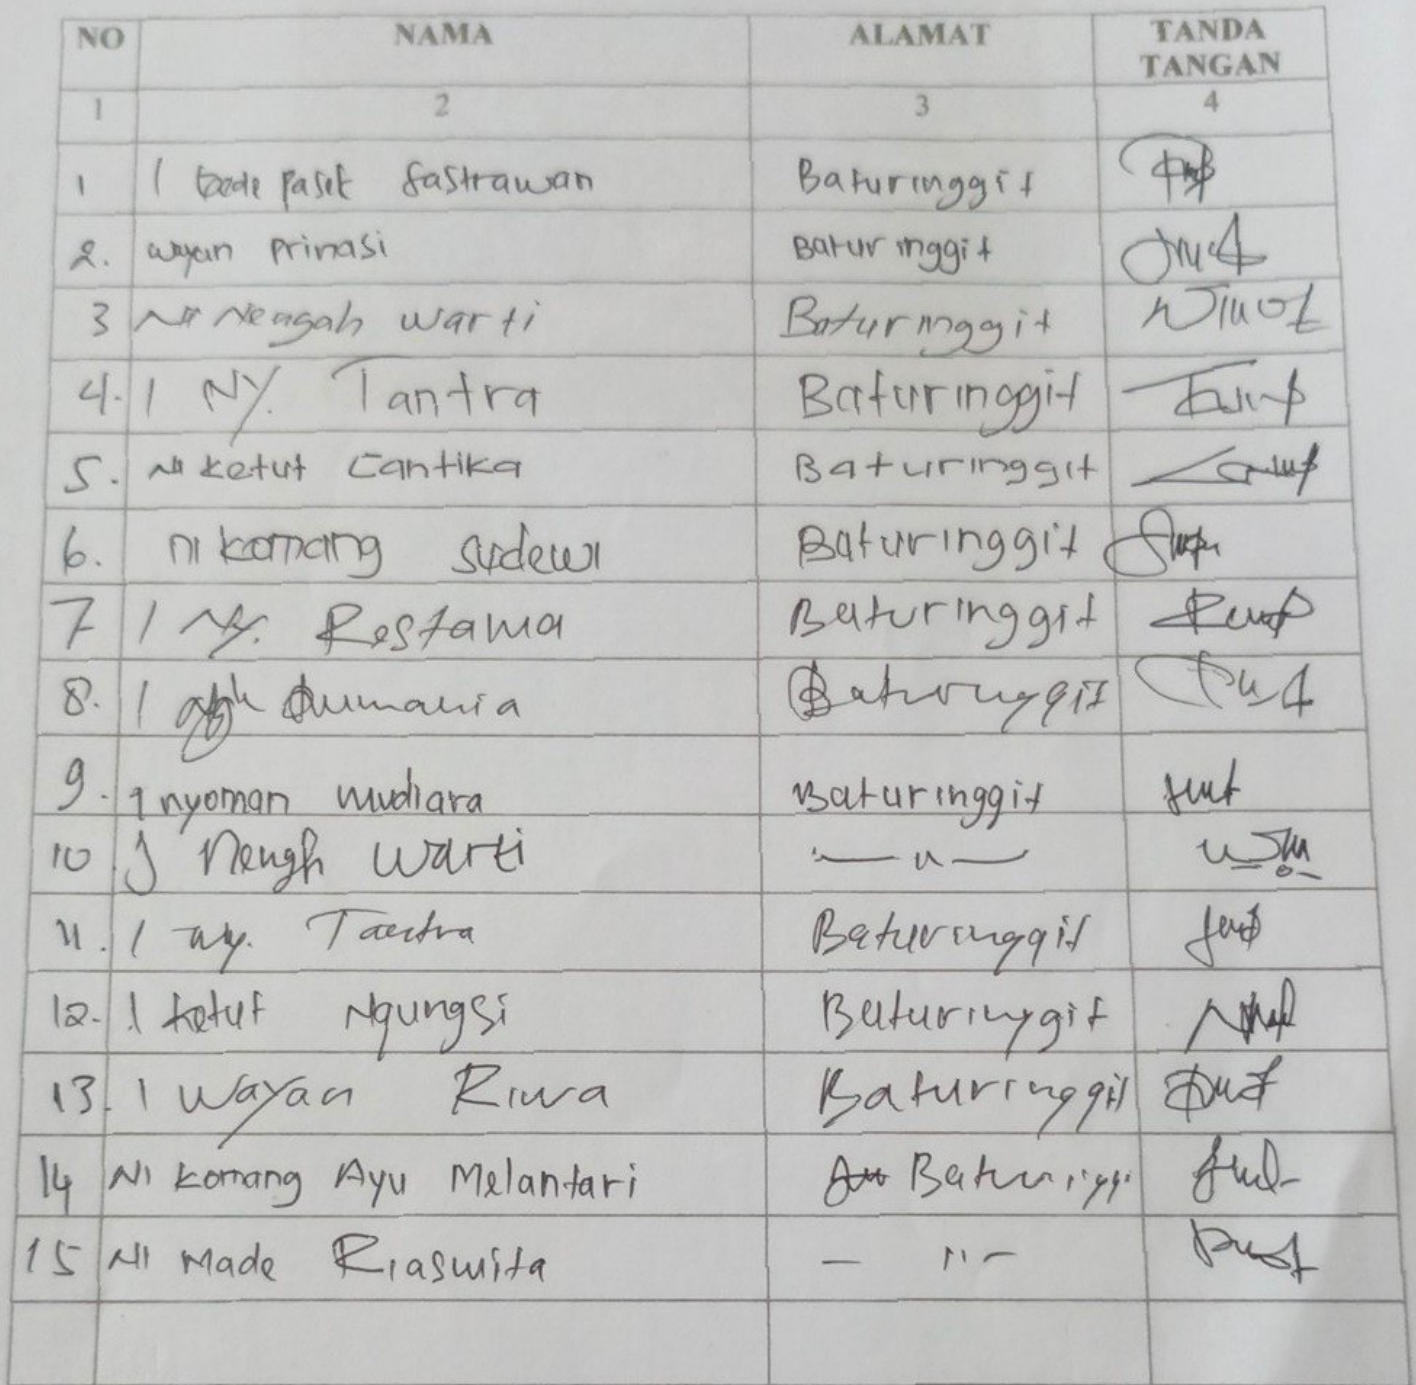 NO NAMA ALAMAT TANDA TANGAN
1 2 3 4
1 I Gede Paset Sastrawan Baturinggit
2. wayan Prinasi Baturinggit
3 Ni Nengah Warti Baturinggit
4. I NY. Tantra Baturinggit
5. Ni Ketut Cantika Baturinggit
6. ni komang sudewi Baturinggit
7 I Ny. Restama Baturinggit
8. I Baturinggit
9. I nyoman mudiara Baturinggit
10 I Nengh Warti — " —
11. I ny. Tantra Baturinggit
12. I ketut Ngungsi Baturinggit
13. I Wayan Riwa Baturinggit
14 Ni Komang Ayu Melantari Baturiggi
15 Ni Made Riaswita — " —